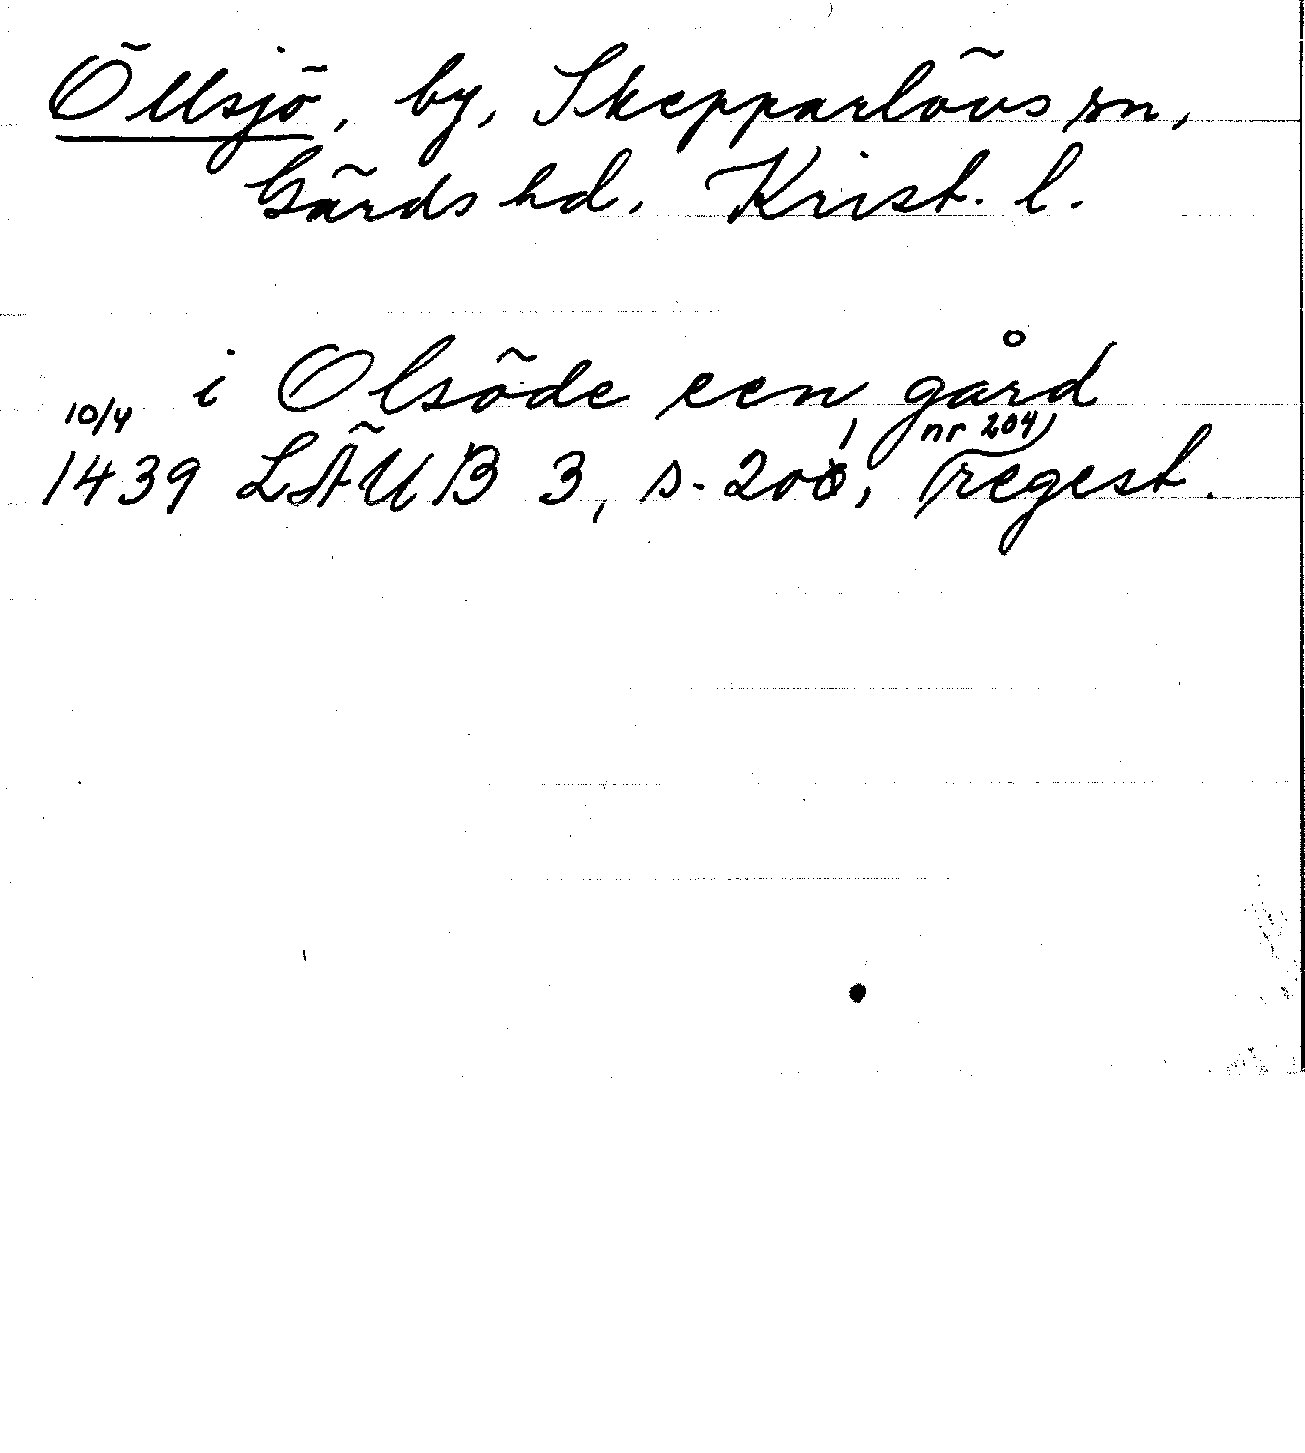 Öllsjö, by, Skepparlövs sn,
Gärds hd. Krist. l.
i Olsöde een gård
10/4 nr 204)
1439 LÄUB 3, s. 201, (regest.